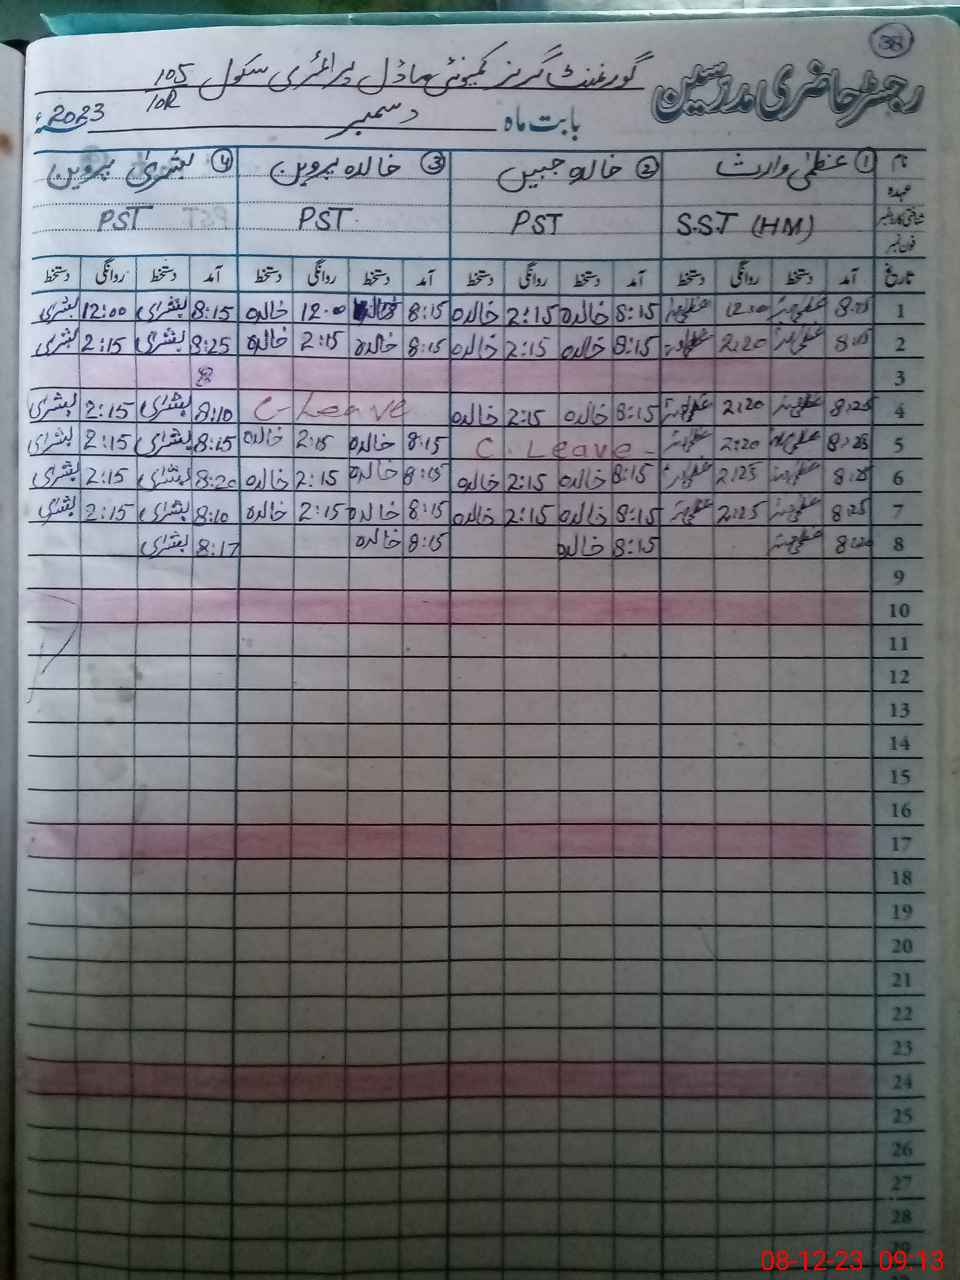 38
رجسٹر حاضری مدرسین گورنمنٹ گرلز کمیونٹی ماڈل پرائمری سکول 105/10R
بابت ماہ دسمبر 2023ء
نام ① عظمیٰ وارث ② خالدہ جبیں ③ خالدہ پروین ④ بشریٰ پروین
عہدہ
شناختی کارڈ نمبر S.S.T (HM) PST PST PST
فون نمبر
تاریخ آمد دستخط روانگی دستخط آمد دستخط روانگی دستخط آمد دستخط روانگی دستخط آمد دستخط روانگی دستخط
1 12:00 8:15 خالدہ 2:15 خالدہ 8:15 12:00 خالدہ 8:15 بشریٰ 12:00 بشریٰ
2 2:20 8:15 خالدہ 2:15 خالدہ 8:15 خالدہ 2:15 خالدہ 8:25 بشریٰ 2:15 بشریٰ
3
4 8:25 2:20 8:15 خالدہ 2:15 خالدہ C-Leave 8:10 بشریٰ 2:15 بشریٰ
5 8:25 2:20 C. Leave - 8:15 خالدہ 2:15 خالدہ 8:15 بشریٰ 2:15 بشریٰ
6 8:25 2:25 8:15 خالدہ 2:15 خالدہ 8:15 خالدہ 2:15 خالدہ 8:20 بشریٰ 2:15 بشریٰ
7 8:25 2:25 8:15 خالدہ 2:15 خالدہ 8:15 خالدہ 2:15 خالدہ 8:10 بشریٰ 2:15 بشریٰ
8 8:15 خالدہ 8:15 خالدہ 8:17 بشریٰ
9
10
11
12
13
14
15
16
17
18
19
20
21
22
23
24
25
26
27
28
29
08-12-23 09:13